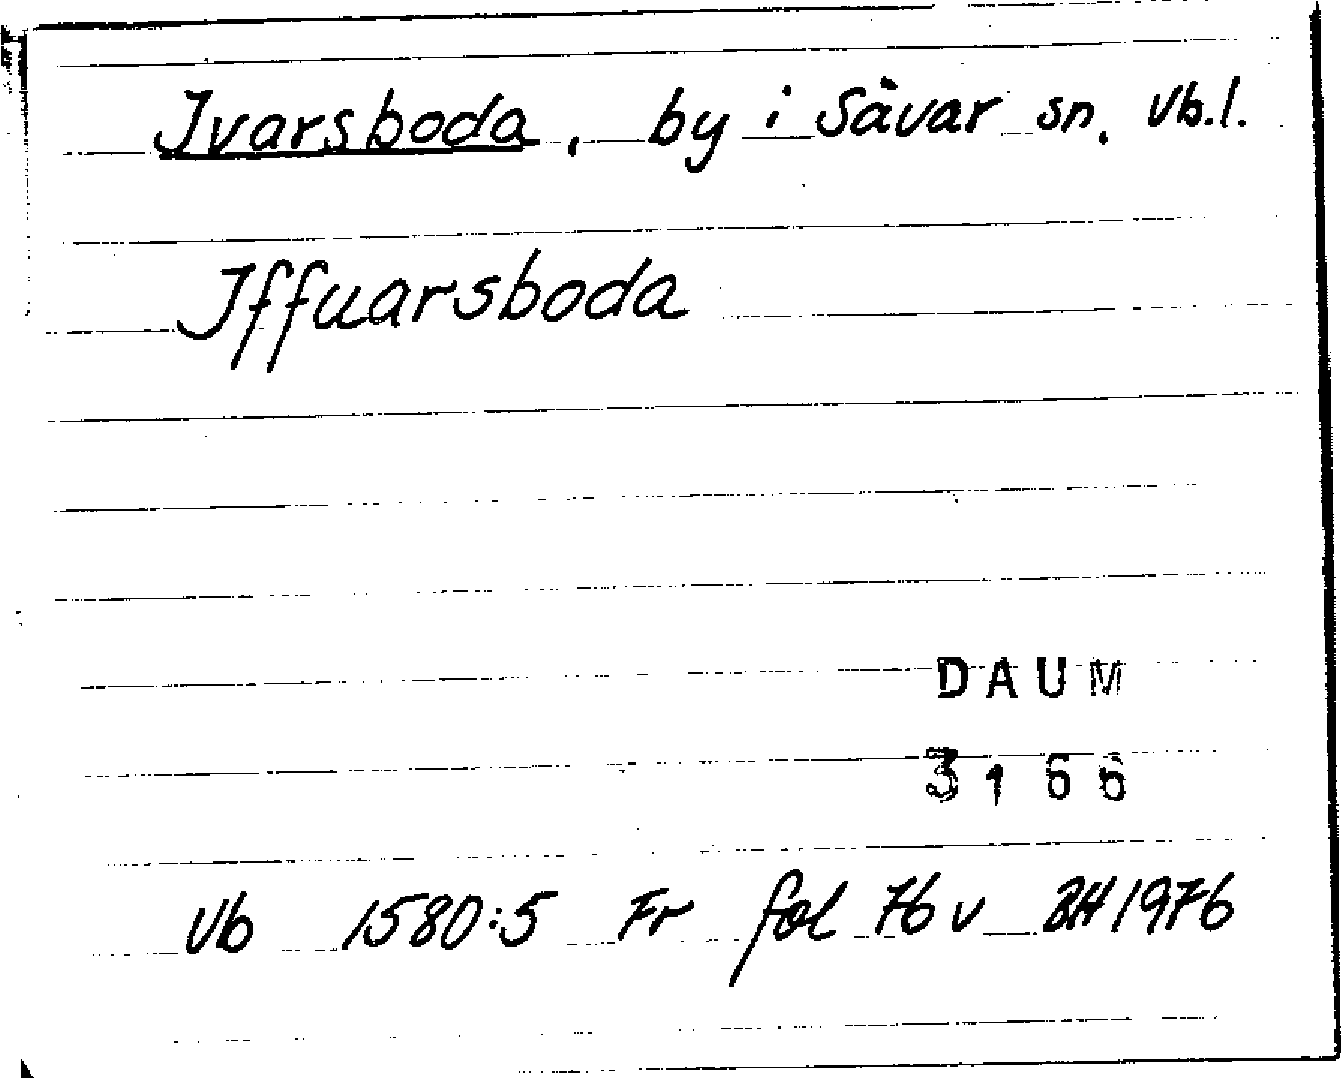 Ivarsboda, by i Sävar sn. Vb.l.
Iffuarsboda
DAUM
3166
Vb 1580:5 Fr fol 76 v 1976